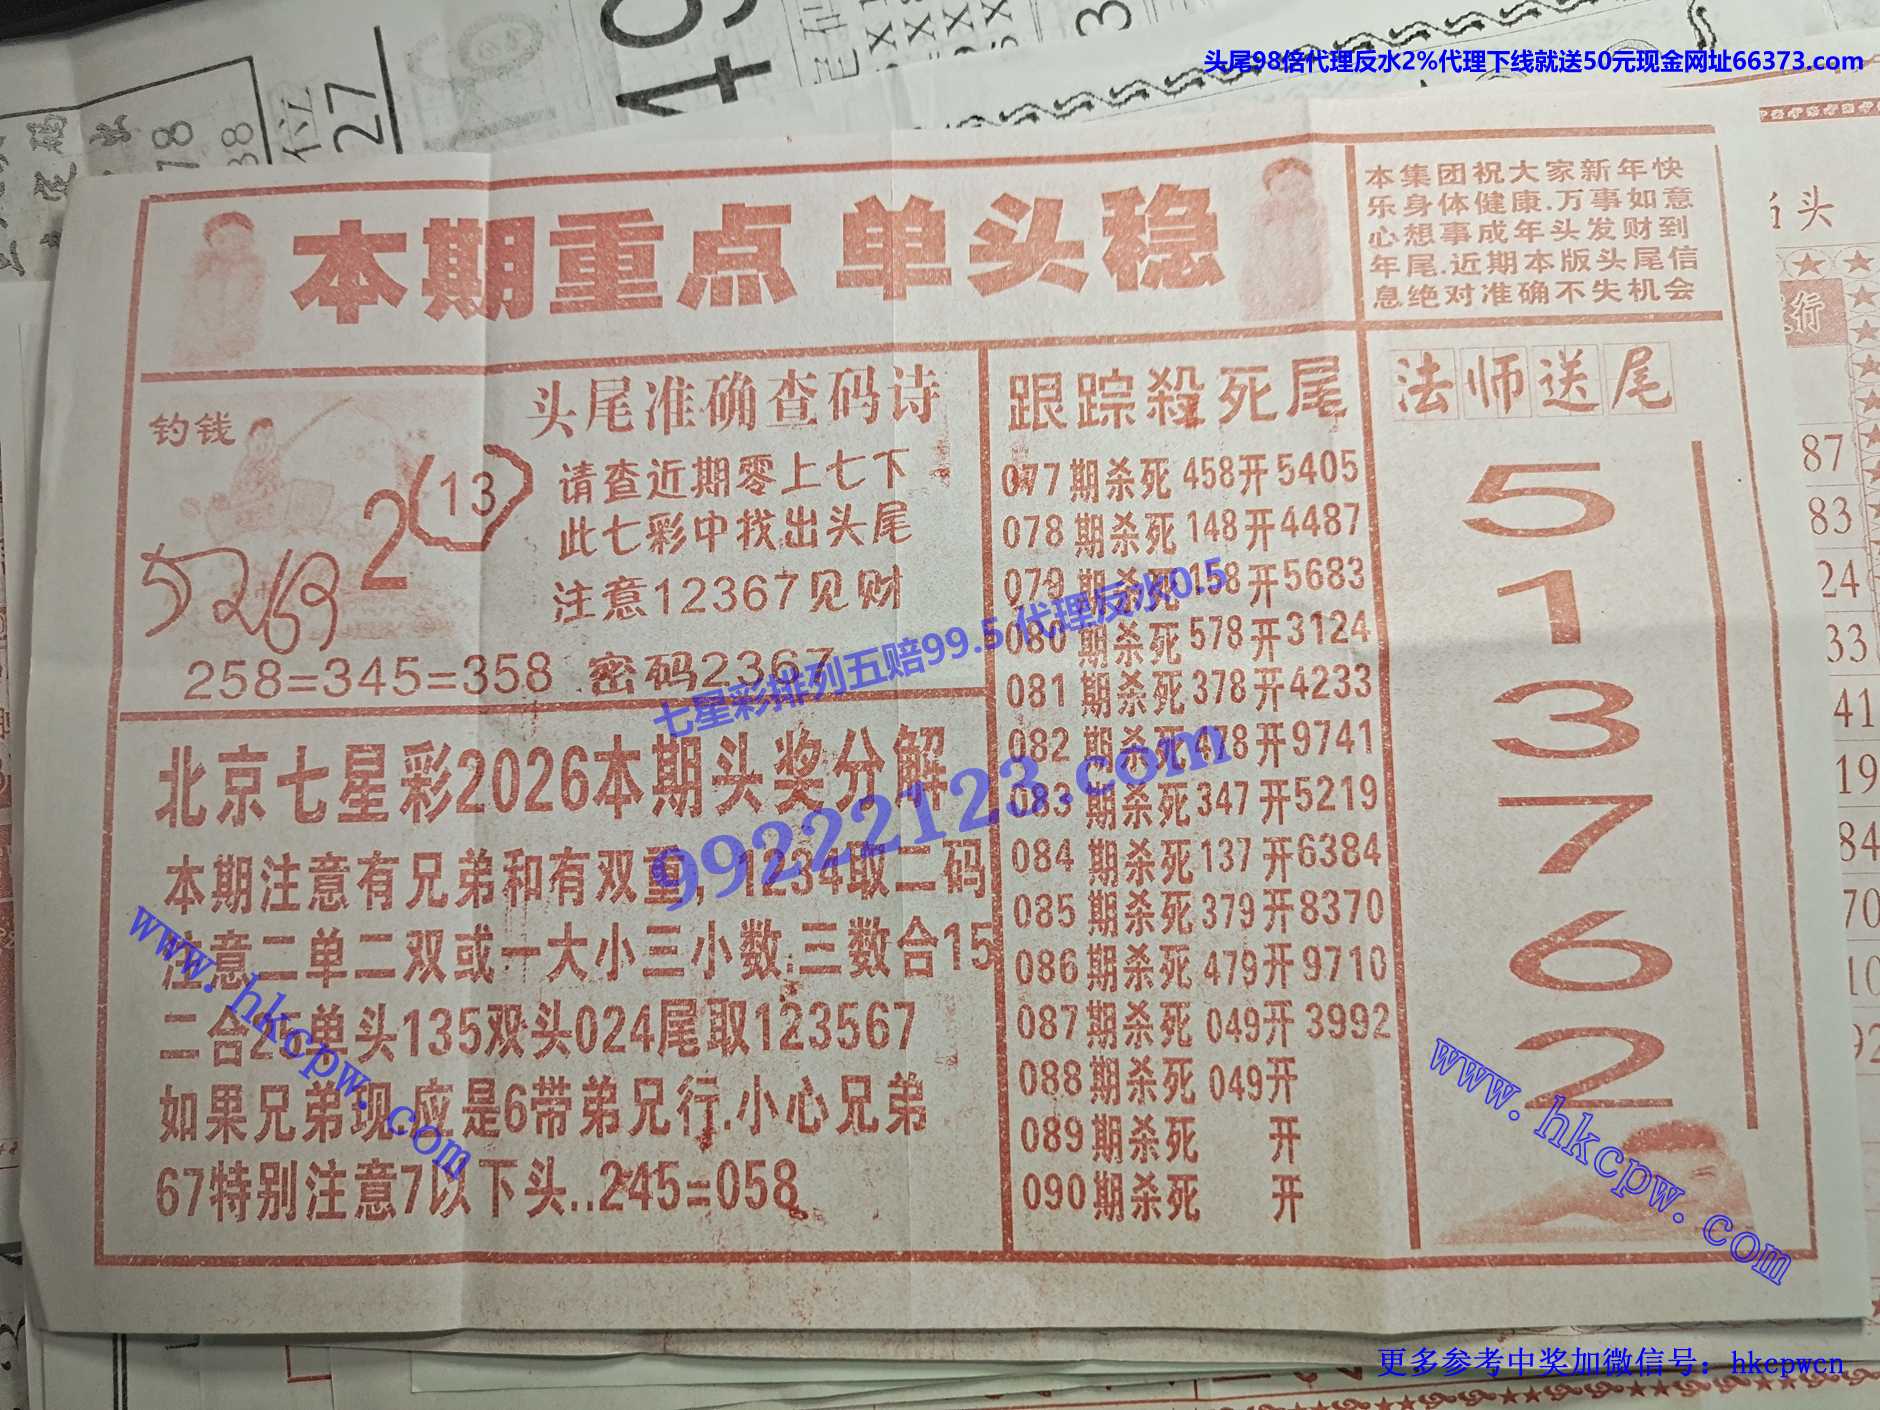 头尾98倍代理反水2%代理下线就送50元现金网址66373.com
本期重点 单头稳
本集团祝大家新年快
乐身体健康.万事如意
心想事成年头发财到
年尾.近期本版头尾信
息绝对准确不失机会
钓钱
2
(13)
头尾准确查码诗
请查近期零上七下
此七彩中找出头尾
注意12367见财
258=345=358 密码2367
跟踪殺死尾
077期杀死458开5405
078期杀死148开4487
079期杀死158开5683
080期杀死578开3124
081期杀死378开4233
082期杀死478开9741
083期杀死347开5219
084期杀死137开6384
085期杀死379开8370
086期杀死479开9710
087期杀死049开3992
088期杀死049开
089期杀死 开
090期杀死 开
法师送尾
5
1
3
7
6
2
北京七星彩2026本期头奖分解
本期注意有兄弟和有双重，1234取二码
注意二单二双或一大小三小数.三数合15
二合25单头135双头024尾取123567
如果兄弟现.应是6带弟兄行.小心兄弟
67特别注意7以下头..245=058
七星彩排列五赔99.5 代理反水0.5
99222123.com
www.hkcpw.com
www.hkcpw.com
更多参考中奖加微信号：hkcpwcn
27
87
83
24
33
41
19
84
70
10
92